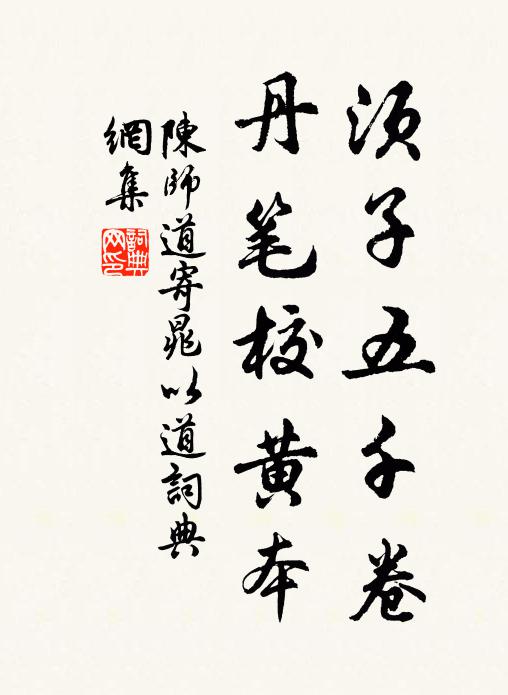 须子五千卷
丹笔校黄本
陳師道寄晁以道詞典
網集
詞典
网印